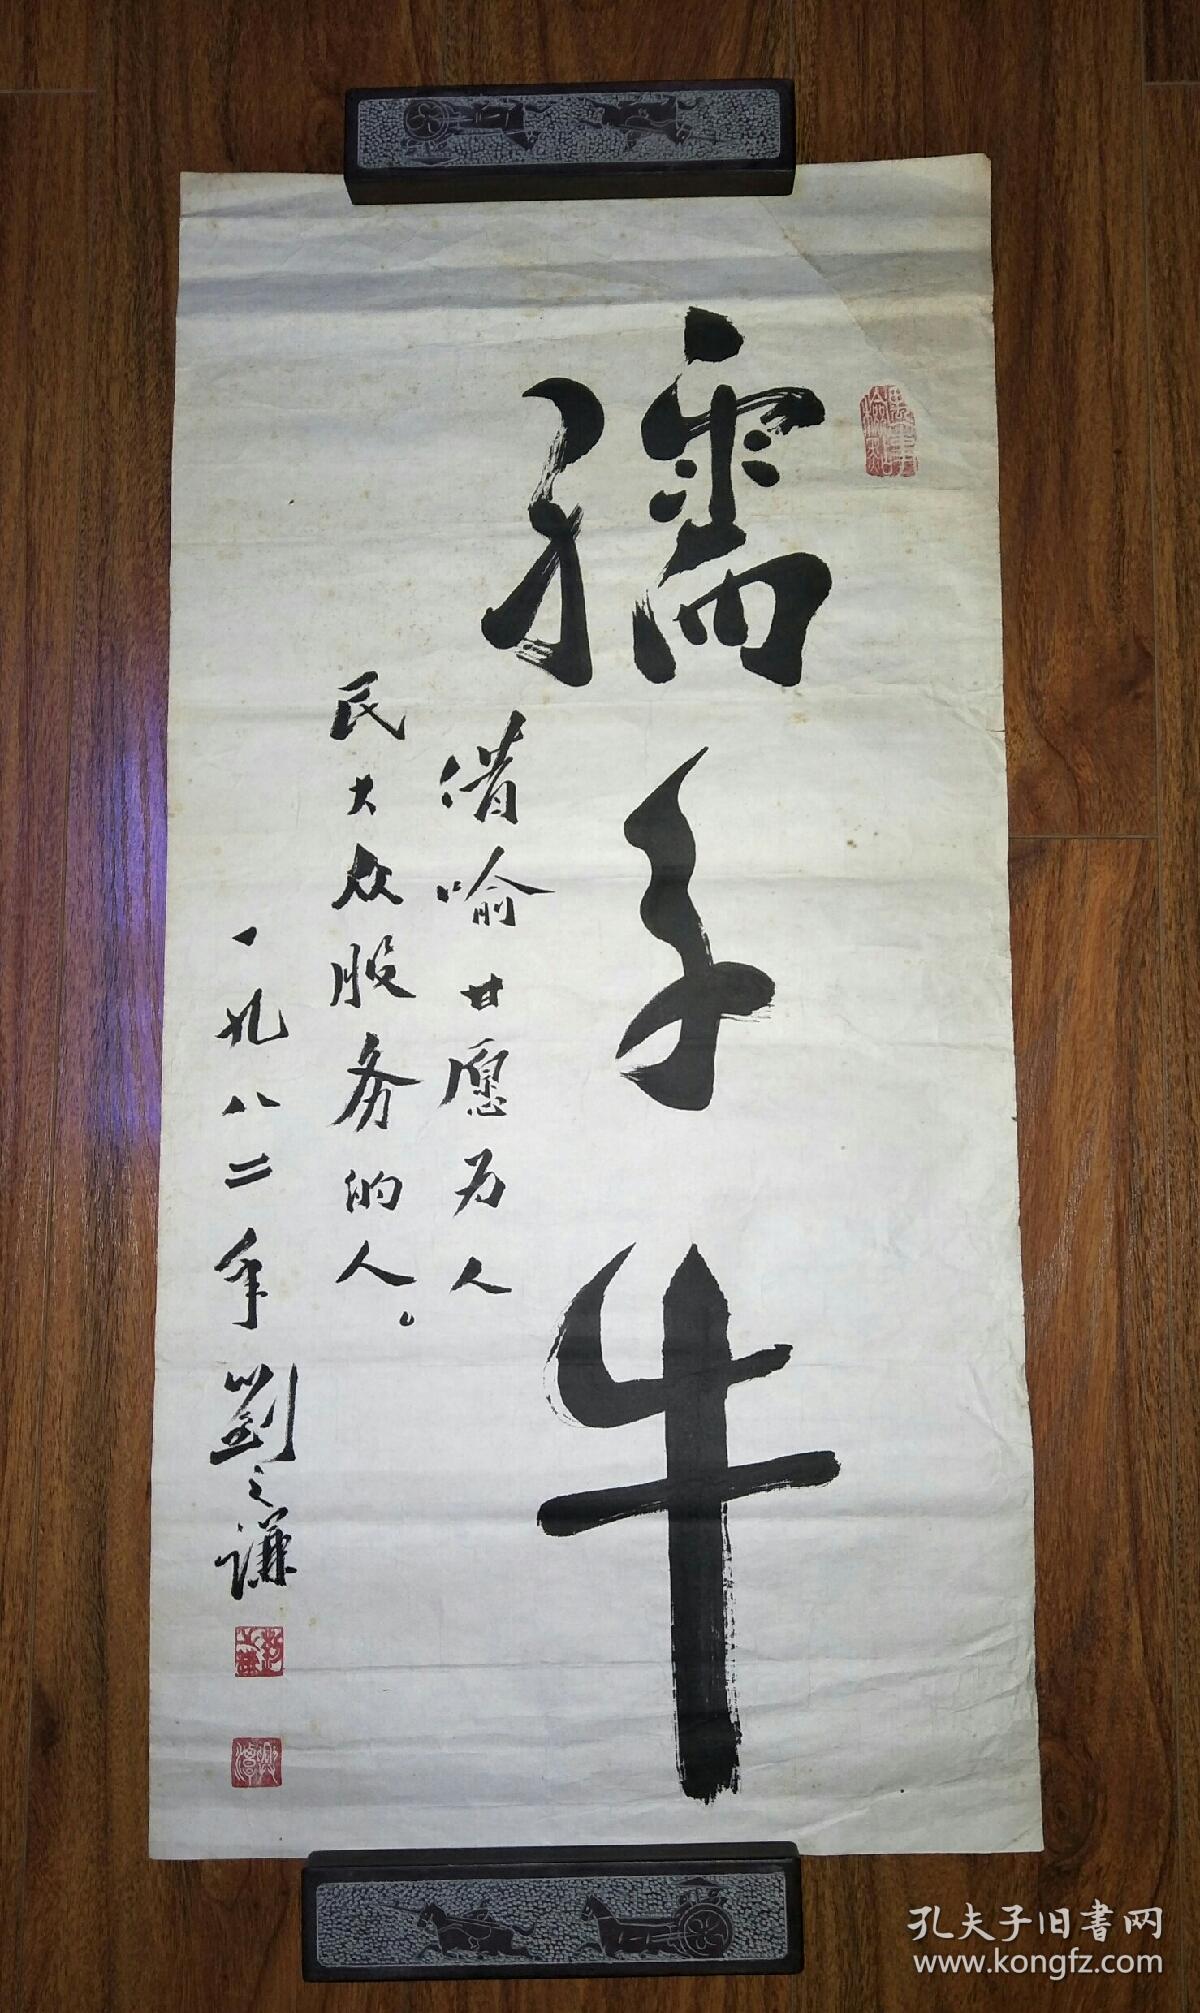 孺子牛
借喻甘愿为人
民大众服务的人。
一九八二年 劉之谦
孔夫子旧書网
www.kongfz.com